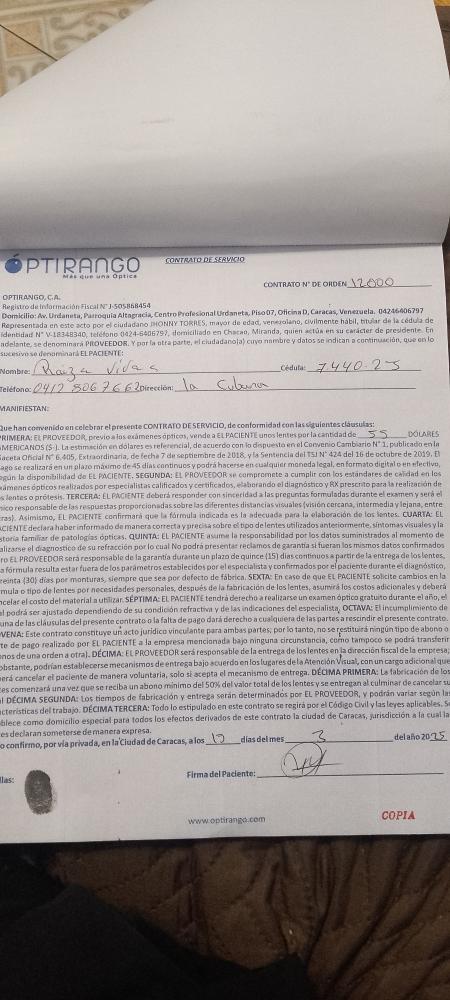 ÓPTIRANGO
Más que una Óptica
CONTRATO DE SERVICIO
CONTRATO N° DE ORDEN 12000
OPTIRANGO, C.A.
Registro de Información Fiscal N° J-505868454
Domicilio: Av. Urdaneta, Parroquia Altagracia, Centro Profesional Urdaneta, Piso 07, Oficina D, Caracas, Venezuela. 04246406797
Representada en este acto por el ciudadano JHONNY TORRES, mayor de edad, venezolano, civilmente hábil, titular de la cédula de
identidad N° V-18348340, teléfono 0424-6406797, domiciliado en Chacao, Miranda, quien actúa en su carácter de presidente. En
adelante, se denominará PROVEEDOR. Y por la otra parte, el ciudadano(a) cuyo nombre y datos se indican a continuación, que en lo
sucesivo se denominará EL PACIENTE:
Nombre: Raiza Vivas Cédula: 7.440.25
Teléfono: 0412 5067662 Dirección: la Cubana
MANIFIESTAN:
Que han convenido en celebrar el presente CONTRATO DE SERVICIO, de conformidad con las siguientes cláusulas:
PRIMERA: EL PROVEEDOR, previo a los exámenes ópticos, vende a EL PACIENTE unos lentes por la cantidad de 55 DÓLARES
AMERICANOS ($-). La estimación en dólares es referencial, de acuerdo con lo dispuesto en el Convenio Cambiario N° 1, publicado en la
Gaceta Oficial N° 6.405, Extraordinaria, de fecha 7 de septiembre de 2018, y la Sentencia del TSJ N° 424 del 16 de octubre de 2019. El
ago se realizará en un plazo máximo de 45 días continuos y podrá hacerse en cualquier moneda legal, en formato digital o en efectivo,
egún la disponibilidad de EL PACIENTE. SEGUNDA: EL PROVEEDOR se compromete a cumplir con los estándares de calidad en los
xámenes ópticos realizados por especialistas calificados y certificados, elaborando el diagnóstico y RX prescrito para la realización de
s lentes o prótesis. TERCERA: EL PACIENTE deberá responder con sinceridad a las preguntas formuladas durante el examen y será el
nico responsable de las respuestas proporcionadas sobre las diferentes distancias visuales (visión cercana, intermedia y lejana, entre
ras). Asimismo, EL PACIENTE confirmará que la fórmula indicada es la adecuada para la elaboración de los lentes. CUARTA: EL
ACIENTE declara haber informado de manera correcta y precisa sobre el tipo de lentes utilizados anteriormente, síntomas visuales y la
storia familiar de patologías ópticas. QUINTA: EL PACIENTE asume la responsabilidad por los datos suministrados al momento de
alizarse el diagnostico de su refracción por lo cual No podrá presentar reclamos de garantía si fueran los mismos datos confirmados
ro EL PROVEEDOR será responsable de la garantía durante un plazo de quince (15) días continuos a partir de la entrega de los lentes,
a fórmula resulta estar fuera de los parámetros establecidos por el especialista y confirmados por el paciente durante el diagnóstico,
reinta (30) días por monturas, siempre que sea por defecto de fábrica. SEXTA: En caso de que EL PACIENTE solicite cambios en la
mula o tipo de lentes por necesidades personales, después de la fabricación de los lentes, asumirá los costos adicionales y deberá
celar el costo del material a utilizar. SÉPTIMA: EL PACIENTE tendrá derecho a realizarse un examen óptico gratuito durante el año, el
l podrá ser ajustado dependiendo de su condición refractiva y de las indicaciones del especialista, OCTAVA: El incumplimiento de
una de las cláusulas del presente contrato o la falta de pago dará derecho a cualquiera de las partes a rescindir el presente contrato.
VENA: Este contrato constituye un acto jurídico vinculante para ambas partes; por lo tanto, no se restituirá ningún tipo de abono o
te de pago realizado por EL PACIENTE a la empresa mencionada bajo ninguna circunstancia, como tampoco se podrá transferir
onos de una orden a otra). DÉCIMA: EL PROVEEDOR será responsable de la entrega de los lentes en la dirección fiscal de la empresa,
obstante, podrían establecerse mecanismos de entrega bajo acuerdo en los lugares de la Atención Visual, con un cargo adicional que
erá cancelar el paciente de manera voluntaria, solo si acepta el mecanismo de entrega. DÉCIMA PRIMERA: La fabricación de los
es comenzará una vez que se reciba un abono mínimo del 50% del valor total de los lentes y se entregan al culminar de cancelar su
l DÉCIMA SEGUNDA: Los tiempos de fabricación y entrega serán determinados por EL PROVEEDOR, y podrán variar según las
cterísticas del trabajo. DÉCIMA TERCERA: Todo lo estipulado en este contrato se regirá por el Código Civil y las leyes aplicables. Se
blece como domicilio especial para todos los efectos derivados de este contrato la ciudad de Caracas, jurisdicción a la cual la
es declaran someterse de manera expresa.
o confirmo, por vía privada, en la Ciudad de Caracas, a los días del mes 3 del año 2025
llas:
Firma del Paciente:
www.optirango.com
COPIA